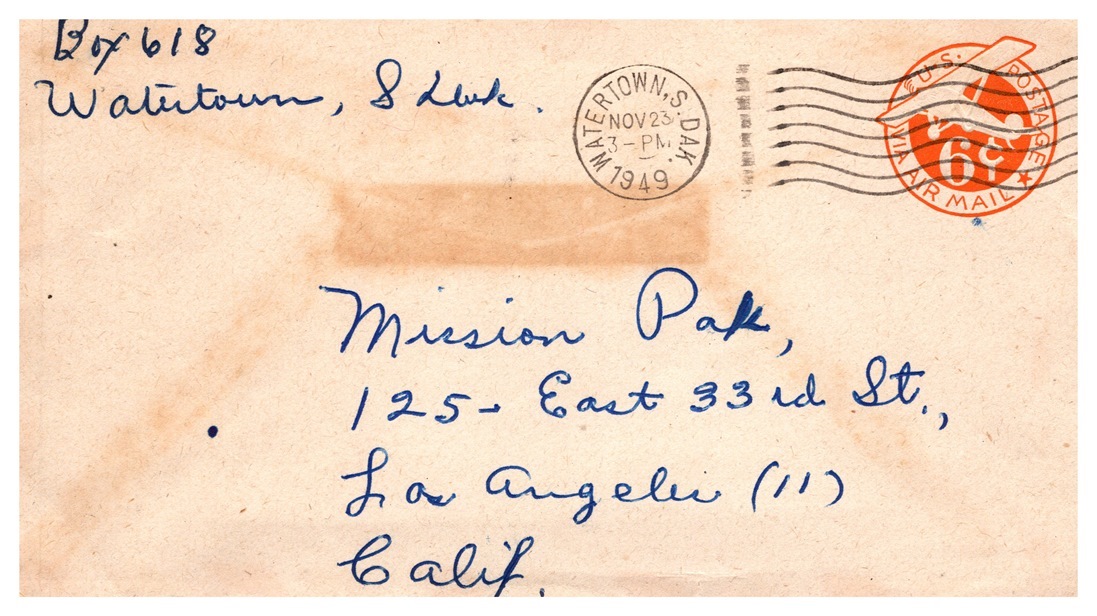 Box 618
Watertown, S Dak.
WATERTOWN, S. DAK.
NOV 23
3-PM
1949
U.S. POSTAGE
6¢
VIA AIR MAIL
Mission Pak,
125- East 33rd St.,
Los Angeles (11)
Calif.